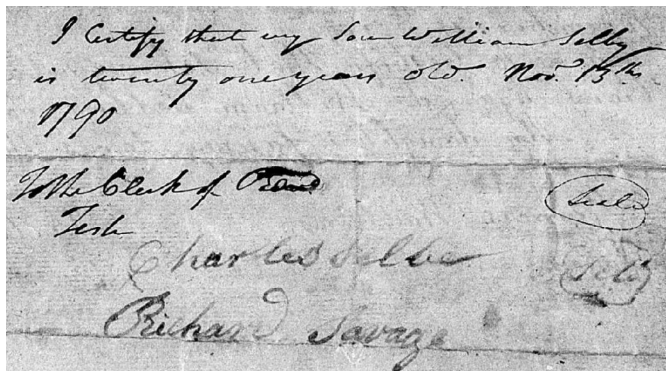 I Certify that my Son William Selby
is twenty one years old. Nov.r 13th
1790
To the Clerk of
Test
Seale
Charles Selbe
Richard Savage